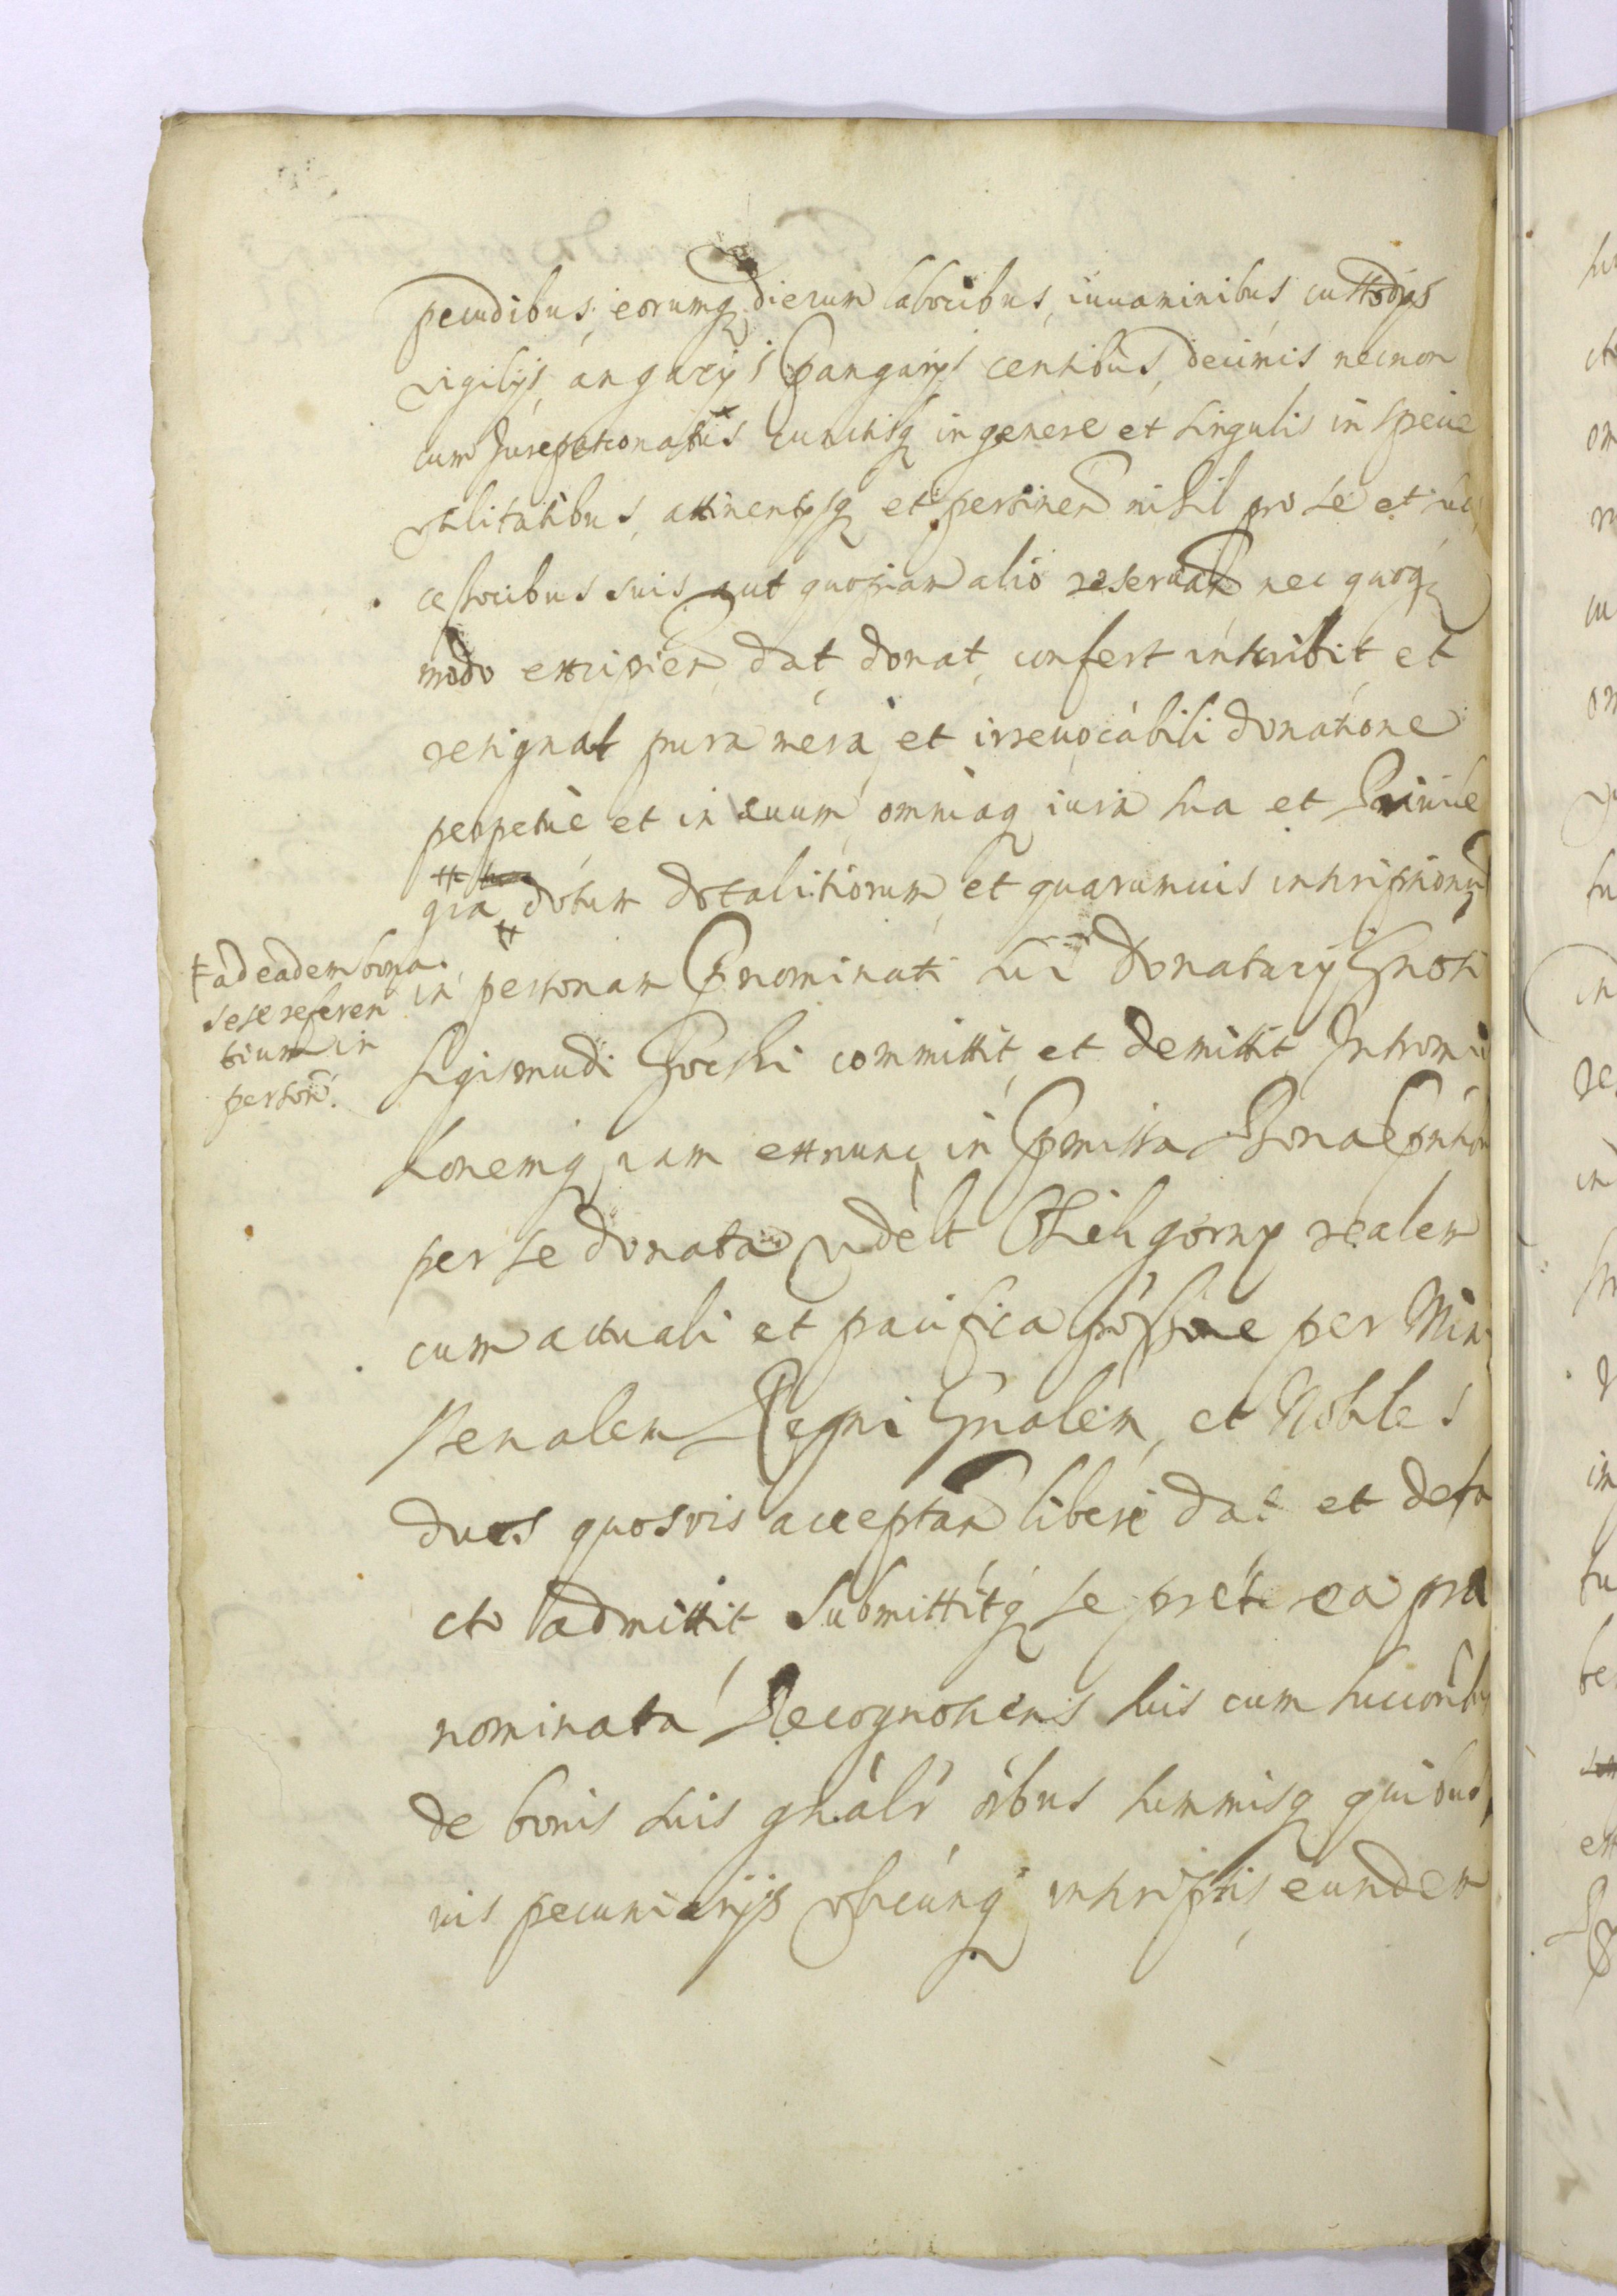 pecudibus, eorumq dierum laboribus, iuuaminibus custodijs
vigilijs, angarijs Pangarijs censibus, decimis necnon
cum Jurepatronatus cunctisq in genere et singulis in specie
vtilitatibus, attinentijsq et pertinen nihil pro se et suc
cessoribus suis aut quopiam alio reseruan nec quoq
modo excipien, dat, donat, confert inscribit, et
resignat pura mera et irreuocabili donatione
perpetue et in aeuum, omniaq iura sua et Priuile
gia dotum dotalitiorum et quarumuis inscriptionum
‡ ad eadem bona
sese referen
tium in
person.
in personam Pnominati sui Donatarij Gnosi
Sigismudi committit, et demittit, Intromis
sionemq iam exnunc in Pmissa Bona
per se donata vdelt gorny realem
cum actuali et pacifica possione per Mini
sterialem Regni Gnalem, et Nobiles
duos quosvis acceptan libere dat et defa
cto admittit Submittitq se preterea pra
nominata Recognoscens suis cum succoribus
de bonis suis gnalr oibus summisq quibus
uis pecuniarijs vbicunq inscriptis, eundem